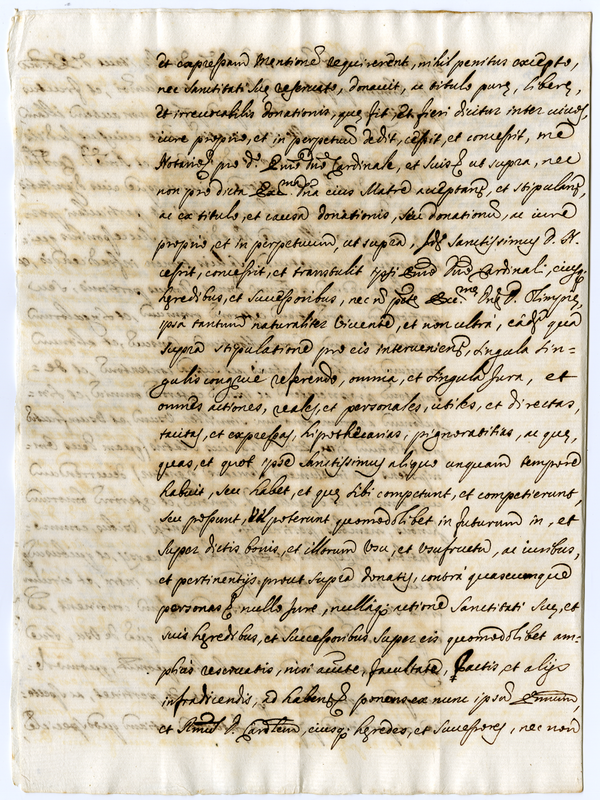 et expressam mentione requirerent, nihil penitus excepto,
nec Sanctitati Suę reseruato, donauit, ac titulo purę, liberę,
et irreuocabilis donationis, quę fit, et fieri dicitur inter uiuos,
iure proprio, et in perpetuum dedit, cessit, et concessit, me
Notario pro d. Cardinale, et suis ut supra, nec
non pro dicta eius Matre acceptan, et stipulan,
ac ex titulo, et causa donationis, seu donationum, ac iure
proprio, et in perpetuum, ut supra, Sanctissimus D. N.
cessit, concessit, et transtulit ipsi Cardinali, eiusq;
hęredibus, et successoribus, nec D. Olimpia,
ipsa tantum naturaliter viuente, et non ultra, qua
supra stipulatione pro eis interuenien, singula sin-
gulis congrue referendo, omnia, et singula Iura, et
omnes actiones, reales, et personales, utiles, et directas,
tacitas, et expressas, hipothecarias, pignoratitias, ac quę,
quas, et quot ipse Sanctissimus aliquo unquam tempore
habuit, seu habet, et quę sibi competunt, et competierunt,
seu possunt, poterunt quomodolibet in futurum in, et
super dictis bonis, et illorum usu, et usufructu, ac iuribus,
et pertinentijs prout supra donatis, contra quascumque
personas nullo Iure, nullaq; actione Sanctitati Suę, et
suis hęredibus, et successoribus super eis quomodolibet am-
plius reseruatis, nisi facultate, pactis, et alijs
infradicendis, ad haben ponens ex nunc ipsum
et D. Cardlem, eiusq; hęredes, et successores, nec non